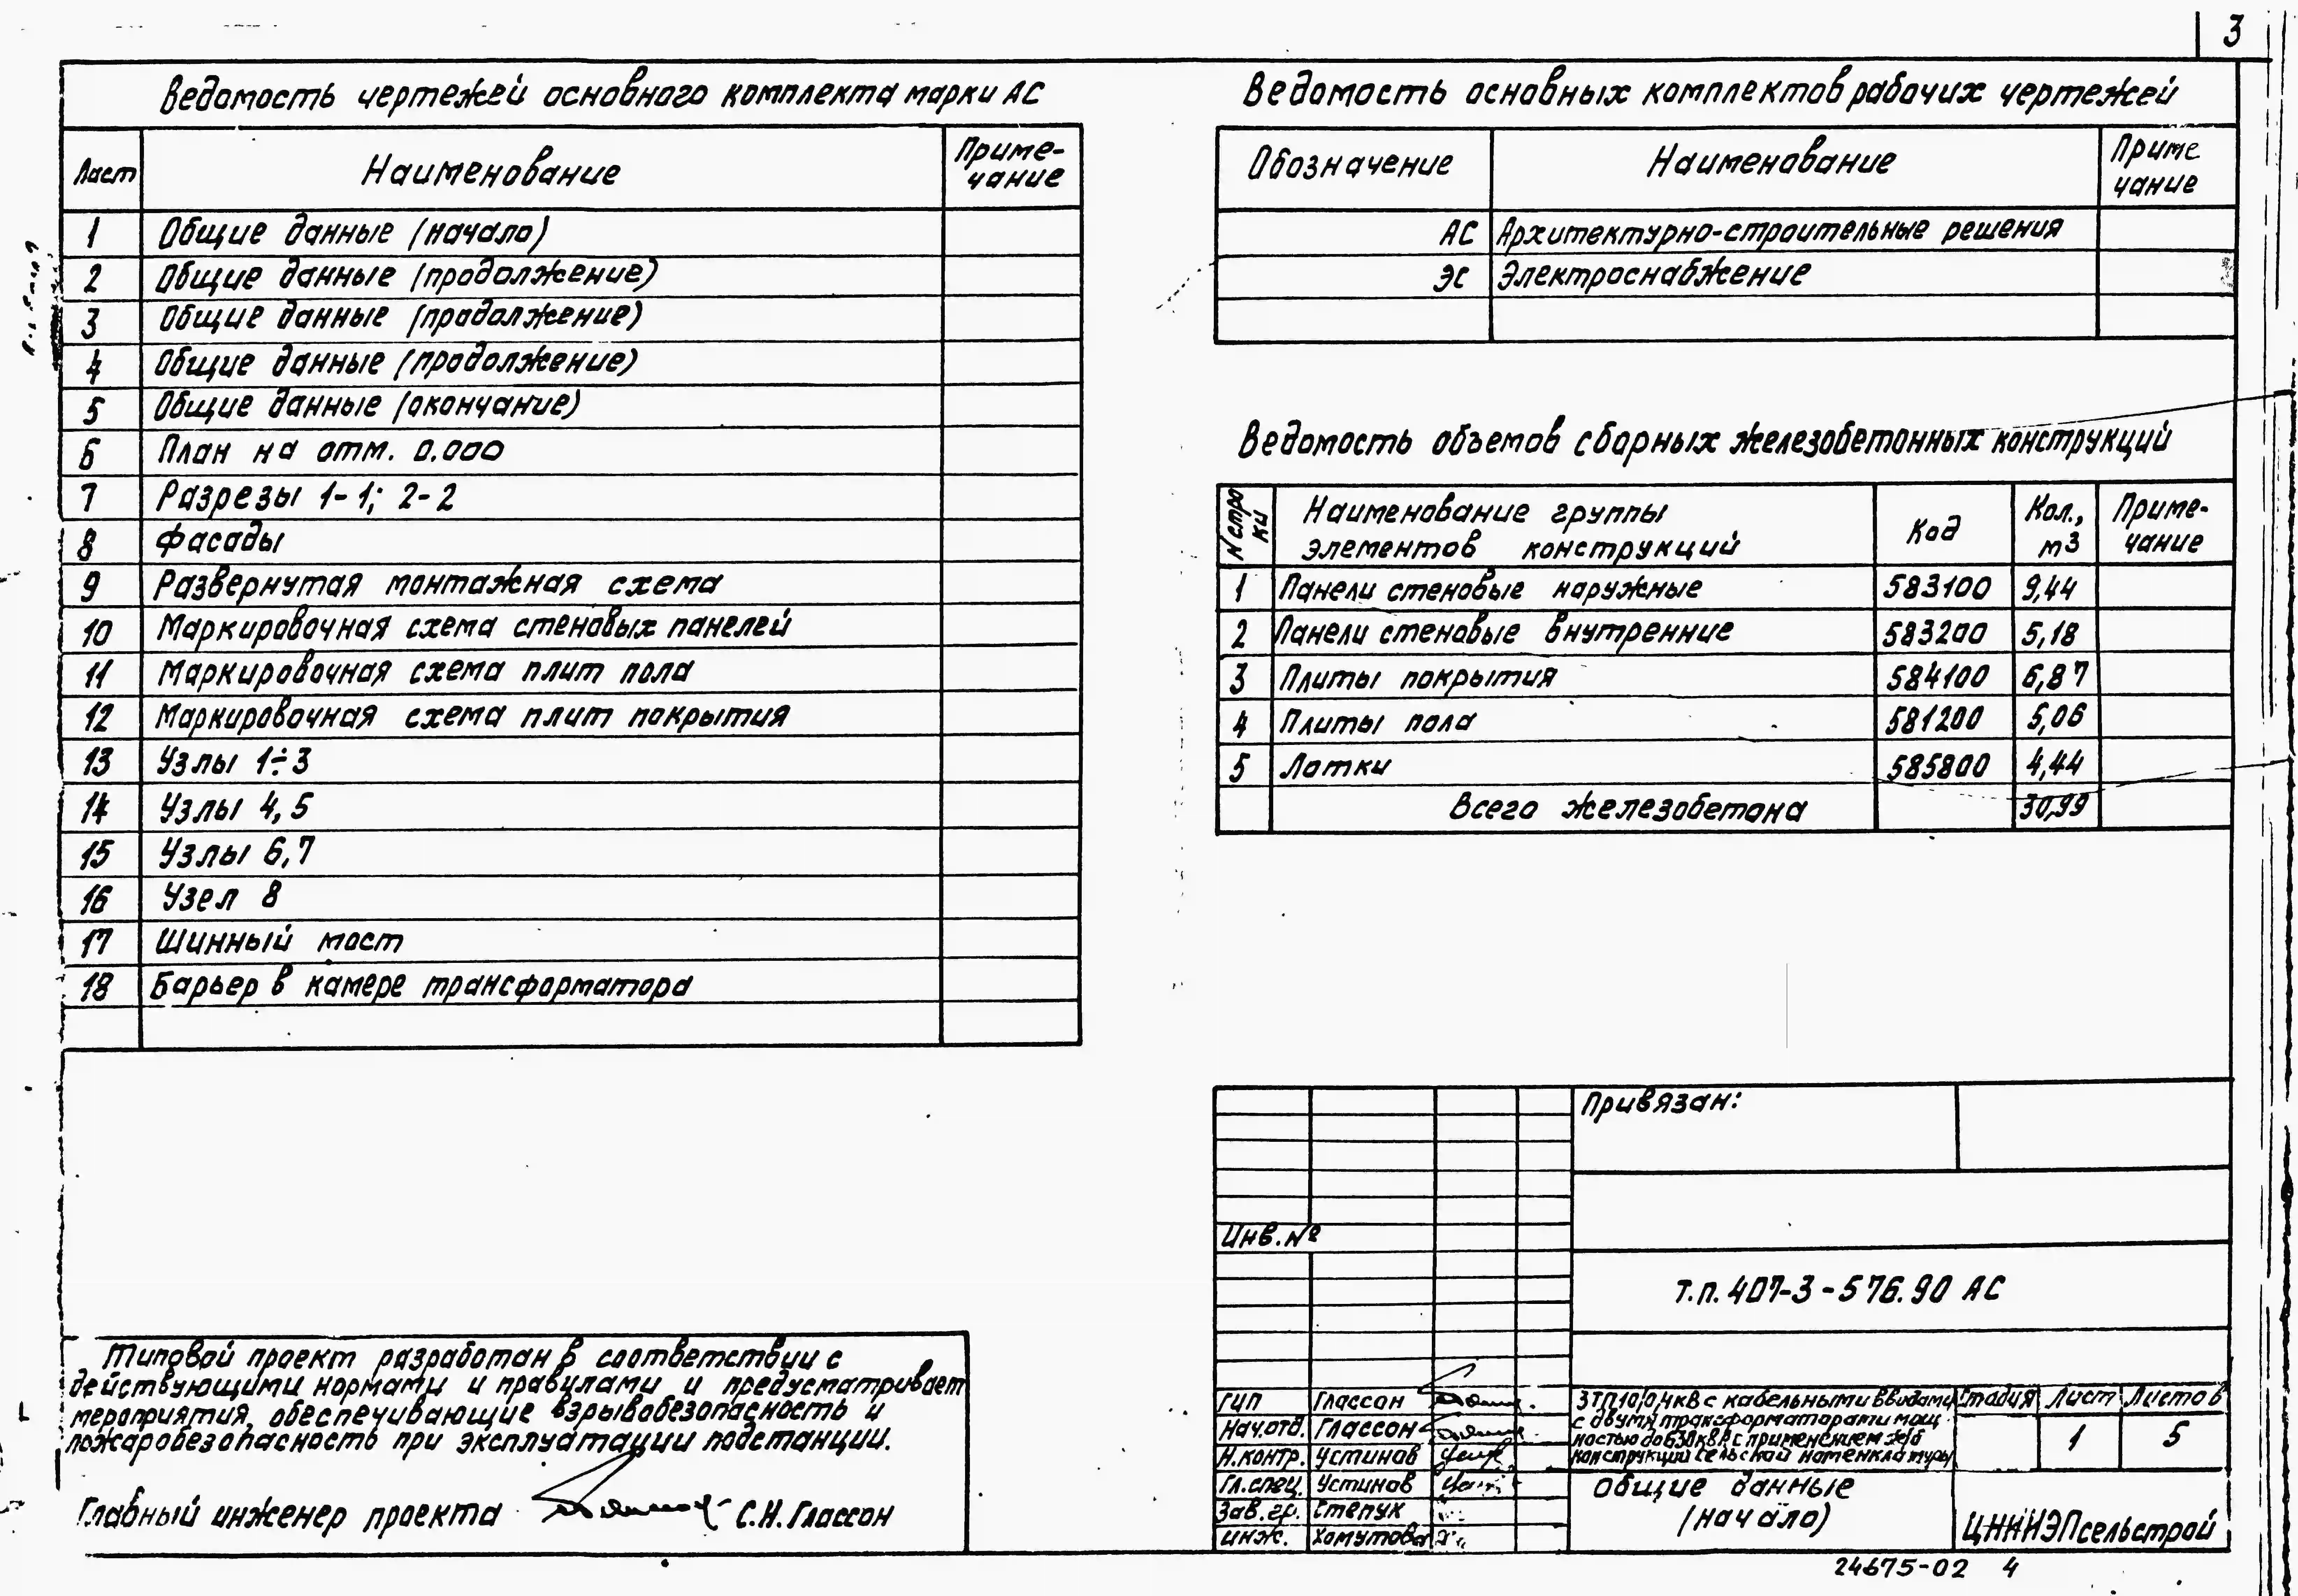 3
Ведомость чертежей основного комплекта марки АС
Лист Наименование Приме-
чание
1 Общие данные (начало)
2 Общие данные (продолжение)
3 Общие данные (продолжение)
4 Общие данные (продолжение)
5 Общие данные (окончание)
6 План на отм. 0.000
7 Разрезы 1-1; 2-2
8 Фасады
9 Развернутая монтажная схема
10 Маркировочная схема стеновых панелей
11 Маркировочная схема плит пола
12 Маркировочная схема плит покрытия
13 Узлы 1÷3
14 Узлы 4, 5
15 Узлы 6,7
16 Узел 8
17 Шинный мост
18 Барьер в камере трансформатора
Типовой проект разработан в соответствии с
действующими нормами и правилами и предусматривает
мероприятия, обеспечивающие взрывобезопасность и
пожаробезопасность при эксплуатации подстанции.
Главный инженер проекта С.Н. Глассон
Ведомость основных комплектов рабочих чертежей
Обозначение Наименование Приме
чание
АС Архитектурно-строительные решения
ЭС Электроснабжение
Ведомость объемов сборных железобетонных конструкций
N стро
ки Наименование группы
элементов конструкций Код Кол.,
м3 Приме-
чание
1 Панели стеновые наружные 583100 9,44
2 Панели стеновые внутренние 583200 5,18
3 Плиты покрытия 584100 6,87
4 Плиты пола 581200 5,06
5 Лотки 585800 4,44
Всего железобетона 30,99
Привязан:
Инв. №
Т.п. 407-3-576.90 АС
ГИП Глассон
Нач.отд. Глассон
Н.контр. Устинов
Гл.спец. Устинов
Зав. гр. Степук
Инж. Хомутова
ЗТП10/0,4кВ с кабельными вводами
с двумя трансформаторами мощ-
ностью до 630кВА с применением ж/б
конструкций сельской номенклатуры
Стадия Лист Листов
1 5
Общие данные
(начало)
ЦНИИЭПсельстрой
24675-02 4